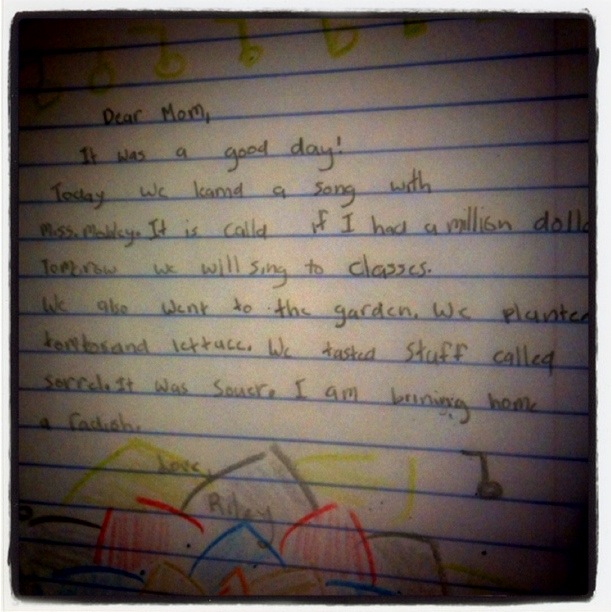 Dear Mom,
It was a good day!
Today we learnd a song with
Miss. It is calld if I had a million dolla
Tomorrow we will sing to classes.
We also went to the garden. We plante
and lettuce. We tasted stuff called
sorrel. It was souer. I am brining home
a radish.
Love,
Riley